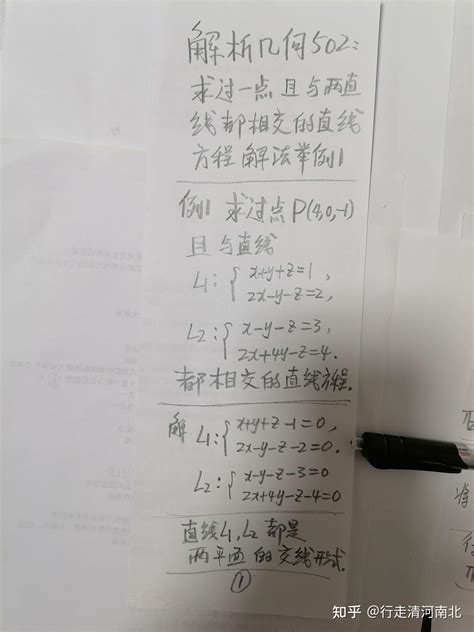 解析几何502:
求过一点且与两直
线都相交的直线
方程解法举例1
例1 求过点P(4,0,-1)
且与直线
L₁:{x+y+z=1,
2x-y-z=2,
L₂:{x-y-z=3,
2x+4y-z=4.
都相交的直线方程.
解 L₁:{x+y+z-1=0,
2x-y-z-2=0.
L₂:{x-y-z-3=0
2x+4y-z-4=0
直线L₁,L₂都是
两平面的交线形式.
①
知乎 @行走清河南北